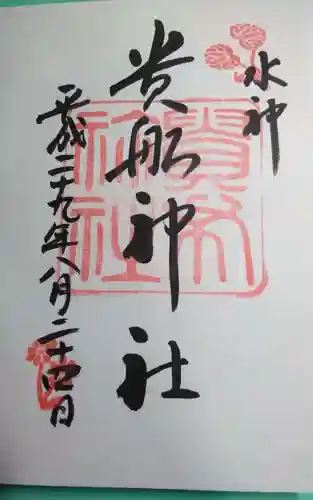 水神
貴船神社
平成二十九年八月二十四日